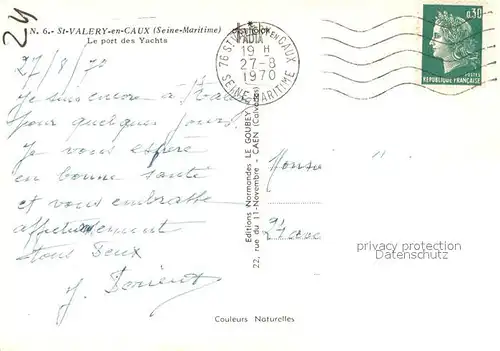 24
N. 6.- St-VALERY-en-CAUX (Seine-Maritime)
Le port des Yachts
27/8/70
Je suis encore à
pour quelques jours.
Je vous espère
en bonne santé
et vous embrasse
affectueusement
tous deux
76 St VALERY EN CAUX
19 H
27-8
1970
SEINE MARITIME
0,30
POSTES
REPUBLIQUE FRANÇAISE
Editions Normandes LE GOUBEY
22, rue du 11-Novembre - CAEN (Calvados)
privacy protection
Datenschutz
Couleurs Naturelles